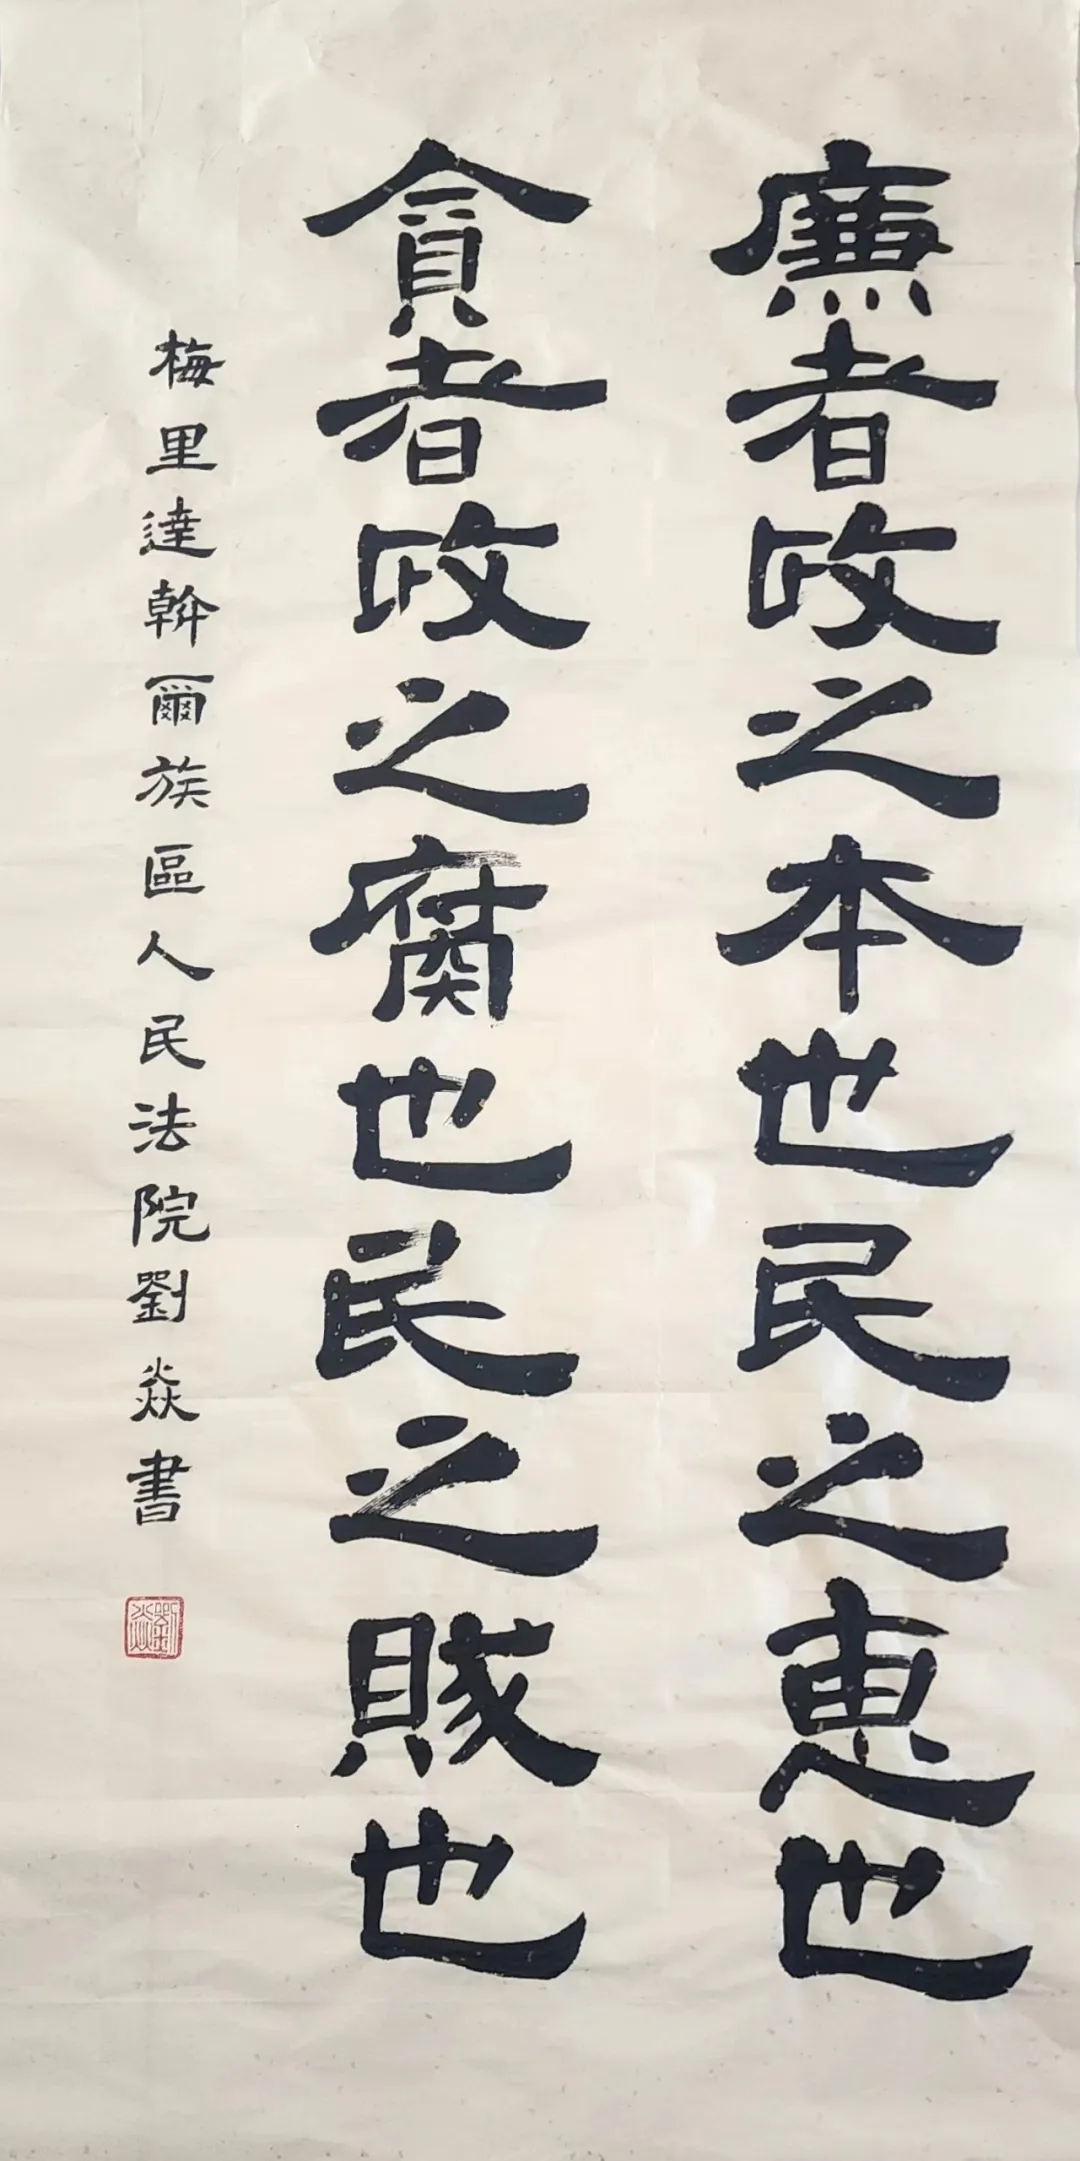 廉者政之本也民之惠也
貪者政之腐也民之賊也
梅里達斡爾族區人民法院劉焱書
劉焱